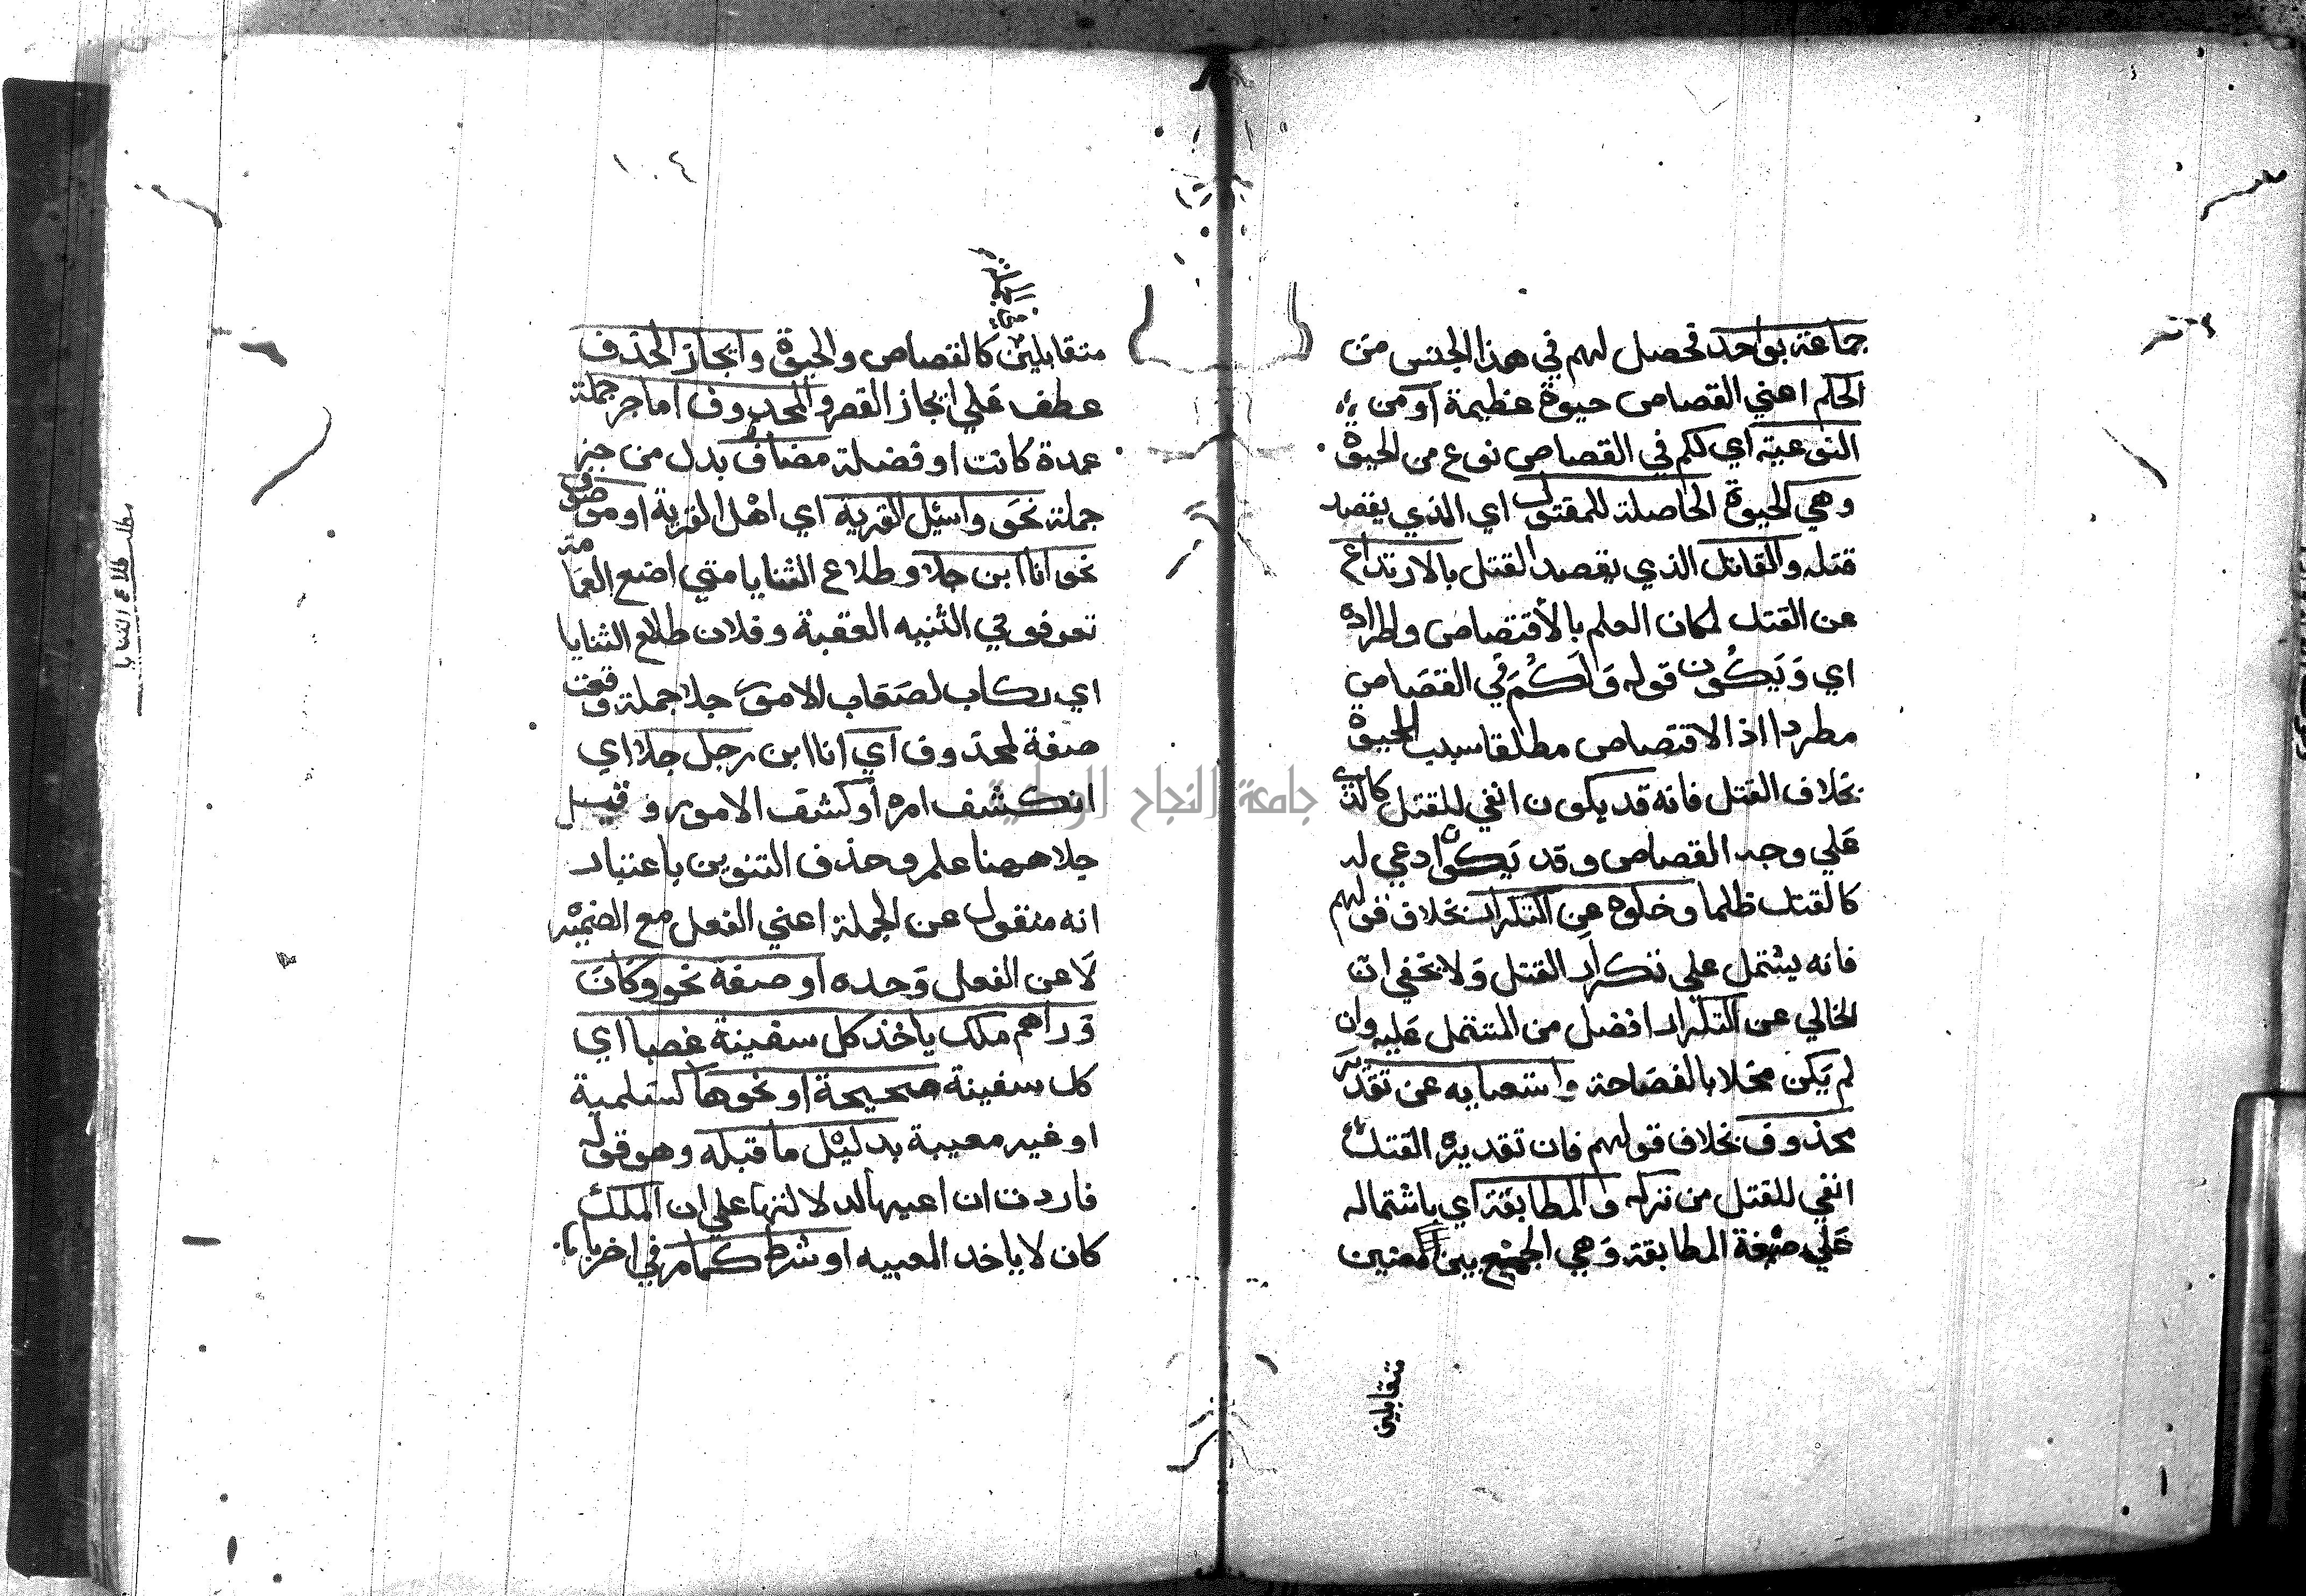 جماعة بواحد فحصل لهم في هذا الجنس من
الحكم اعني القصاص حيوة عظيمة او من
النوعية اي لكم في القصاص نوع من الحيوة
وهي الحيوة الحاصلة للمقتول اي الذي يقصد
قتله والقاتل الذي يقصد القتل بالارتداع
عن القتل لمكان العلم بالاقتصاص واطراده
اي وَيَكُون قوله وَلَكُمْ في القصَاص
مطردا اذ الاقتصاص مطلقا سبب الحيوة
بخلاف القتل فانه قد يكون انفي للقتل كالذي
عَلي وجه القصاص وقد يَكون ادعي له
كالقتل ظلما وخلوه عن التكرار بخلاف قولهم
فانه يشتمل علي تكرار القتل وَلا يخفي ان
الخالي عن التكرار افضل من المشتمل عَليه وان
لم يَكن مخلا بالفصَاحة واستغنايه عن تقدير
محذوف بخلاف قولهم فان تقديره القتل
انفي للقتل من تركه والمطابقة اي باشتماله
عَلي صنعة المطابقة وَهي الجمع بين المعنيين
متقابلين
١٠٤
متقابلين كالقصاص والحيوة وايجاز الحذف
عطف عَلي ايجاز القصر والمحذوف اما جز جملة
عمدة كانت او فضلة مضاف بدل من جز
جملة نحَو واسئل القرية اي اهْل القرية او موصوف
نحو انا ابن جلا وطلاع الثنايا متي اضع العمَامة
تعرفوني الثنيه العقبة وفلان طلاع الثنايا
اي ركاب لصعَاب الامور جلا جملة وقعت
صفة لمحذوف اي انا ابن رجل جلا اي
انكشف امره او كشف الامور وقيل
جلا ههنا علم وحذف التنوين باعتبار
انه منقول عن الجملة اعني الفعل مع الضمير
لَا عن الفعل وَحده او صفة نحو وكَانَ
وَراهم ملك ياخذ كل سفينة غصبا اي
كل سفينة صحيحة او نحوها كسَلمية
او غير معيبة بدليْل ما قبله وهو قوله
فاردت ان اعيبها لدلالتها علي ان الملك
كان لا ياخذ المعيبه او شرط كمَا مر في اخر باب
مطلب طلاع الثنايا
جامعة النجاح الوطنية